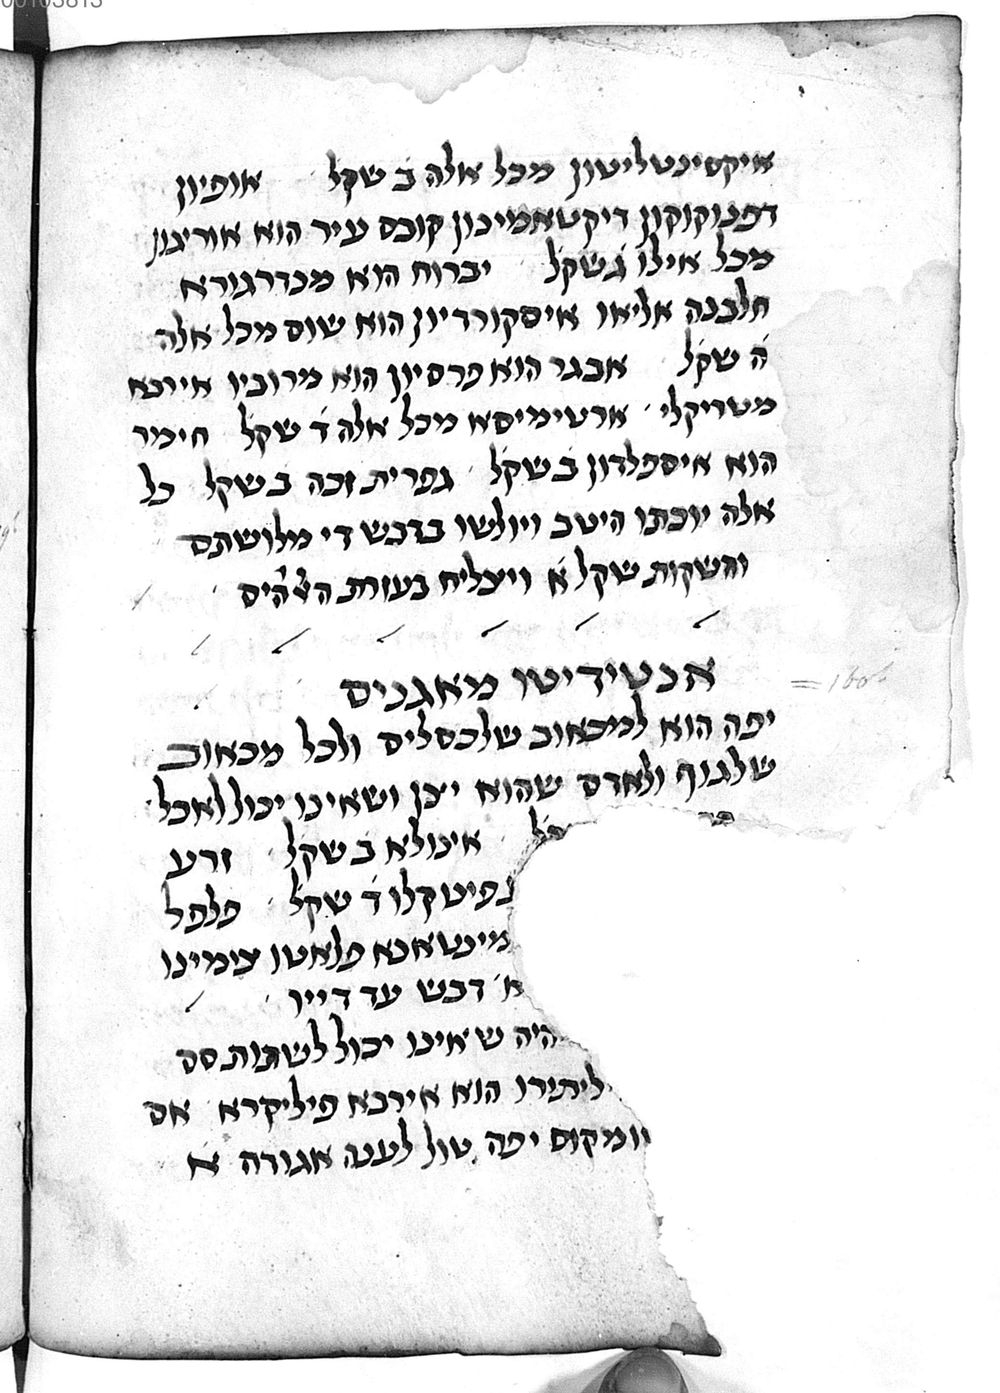 איקסינטליטון מכל אלה ב שקל אופיון
דפנוקוקון דיקטאמינון קוכס עיר הוא אוריגנון
מכל אילו ג שקל יברוח הוא מנדרגורא
חלבנה אליאו איסקורדיון הוא שום מכל אלה
ה שקל אבגר הוא פרסיון הוא מרוביו אירבא
מטריקלי ארטימיסא מכל אלה ד שקל חימר
הוא איספלדון ב שקל גפרית זכה ב שקל כל
אלה יוכתו היטב ויולשו בדבש די מלושתם
והשקות שקל א ויצליח בעזרת
אנטידיטו מאגניס
יפה הוא למכאוב שלכסלים ולכל מכאוב
שלגוף ולאדם שהוא ושאינו יכול לאכל
אינולא ב שקל זרע
נפיטקלו ד שקל פלפל
מינטאנא פלאטו צימינו
א דבש עד דייו
היה שאינו יכול לשתות סם
ליתירו הוא אירבא פיליקרא אם
ומקום יפה טול לענה אגודה א